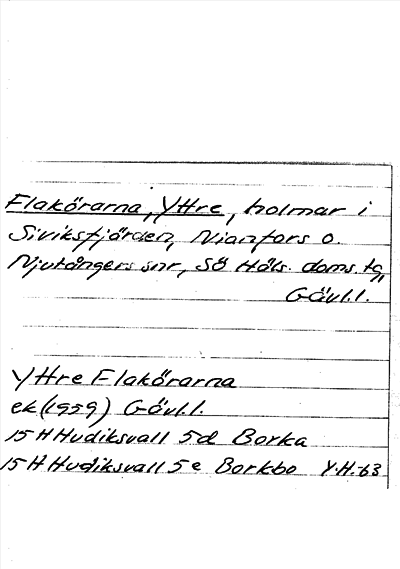 Flakörarna, Yttre, holmar i
Siviksfjärden, Nianfors o.
Njutångers snr, Sö Häls. doms. tg,
Gävl.l.
Yttre Flakörarna
ek (1959) Gävl.l.
15 H Hudiksvall 5d Borka
15 H Hudiksvall 5e Borkbo Y.H.-63